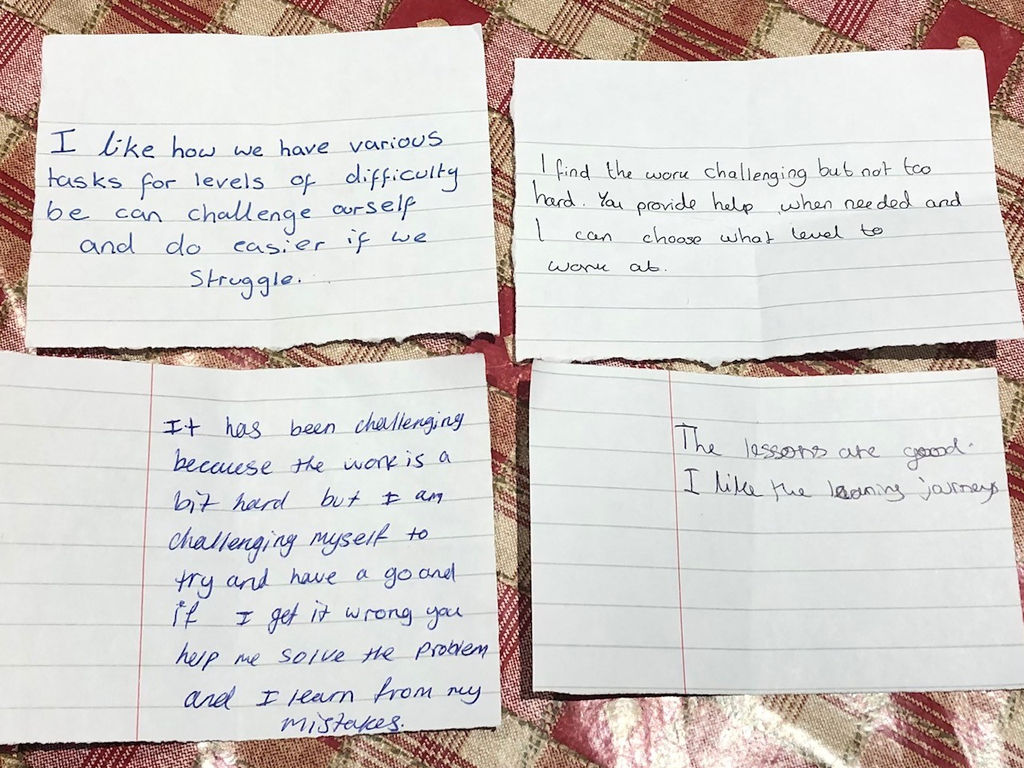 I like how we have various
tasks for levels of difficulty
be can challenge ourself
and do easier if we
struggle.
I find the work challenging but not too
hard. You provide help when needed and
I can choose what level to
work at.
It has been challenging
because the work is a
bit hard but I am
challenging myself to
try and have a go and
if I get it wrong you
help me solve the problem
and I learn from my
mistakes.
The lessons are good.
I like the learning journeys